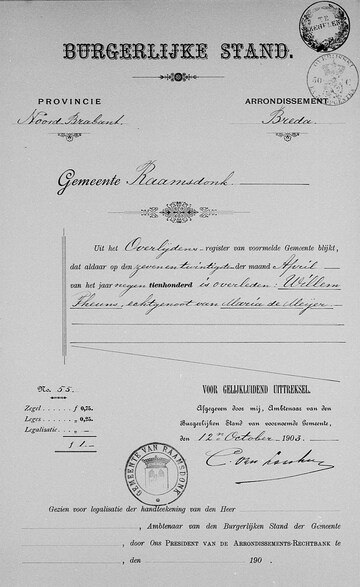 BURGERLIJKE STAND.
PROVINCIE
Noord Brabant.
ARRONDISSEMENT
Breda.
Gemeente Raamsdonk
Uit het Overlijdens-register van voormelde Gemeente blijkt,
dat aldaar op den zevenentwintigsten der maand April
van het jaar negentienhonderd is overleden: Willem
Theuns, echtgenoot van Maria de Meijer
No. 55.
Zegel f 0,25.
Leges „ 0,75.
Legalisatie „
f 1.-
VOOR GELIJKLUIDEND UITTREKSEL.
Afgegeven door mij, Ambtenaar van den
Burgerlijken Stand van voornoemde Gemeente,
12en October 1903.
GEMEENTE VAN RAAMSDONK
Gezien voor legalisatie der handteekening van den Heer
, Ambtenaar van den Burgerlijken Stand der Gemeente
, door Ons PRESIDENT VAN DE ARRONDISSEMENTS-RECHTBANK te
, den 190 .